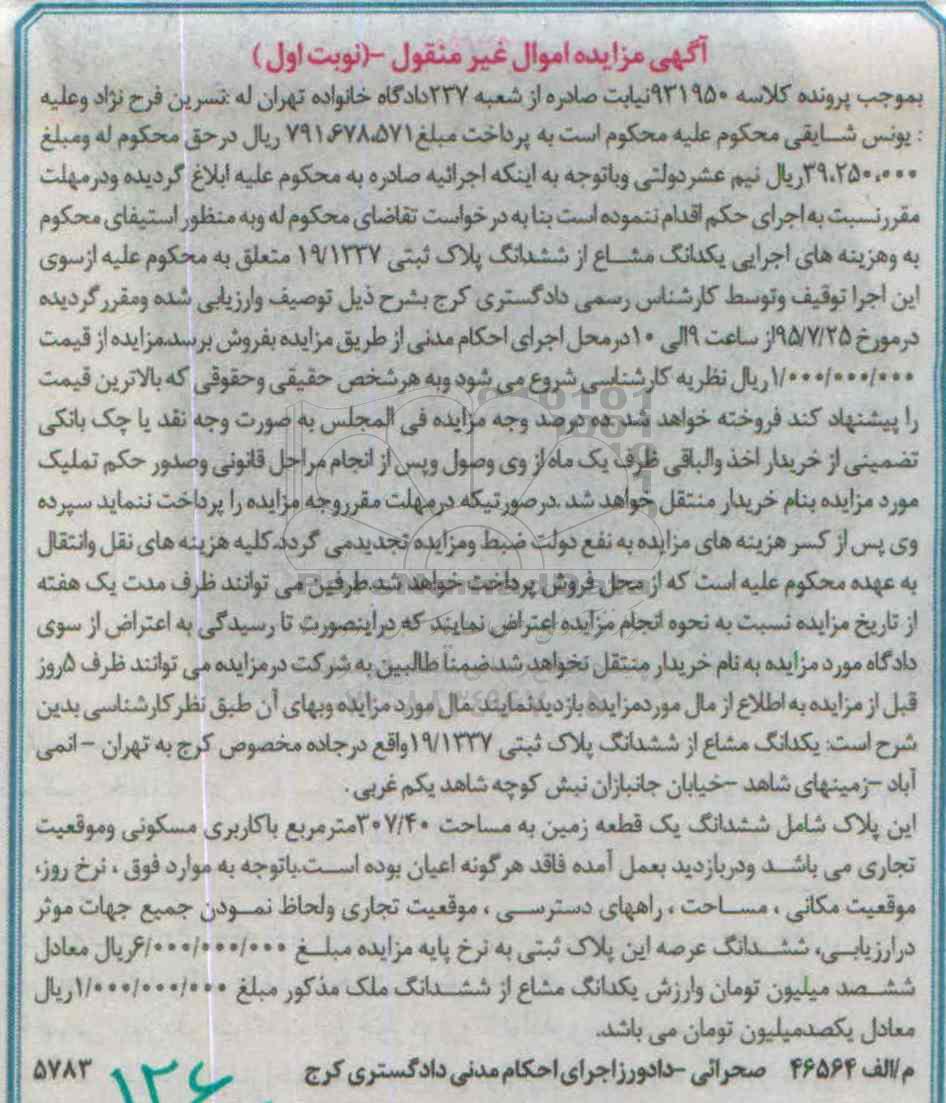 آگهی مزایده اموال غیر منقول -(نوبت اول)
بموجب پرونده کلاسه ۹۳۱۹۵۰نیابت صادره از شعبه ۲۳۷دادگاه خانواده تهران له :نسرین فرح نژاد وعلیه
: یونس شـایقی محکوم علیه محکوم است به پرداخت مبلغ۷۹۱،۶۷۸،۵۷۱ ریال درحق محکوم له ومبلغ
۳۹،۲۵۰،۰۰۰ریال نیم عشردولتی وباتوجه به اینکه اجرائیه صادره به محکوم علیه ابلاغ گردیده ودرمهلت
مقررنسبت به اجرای حکم اقدام ننموده است بنا به درخواست تقاضای محکوم له وبه منظور استیفای محکوم
به وهزینه های اجرایی یکدانگ مشـاع از ششدانگ پلاک ثبتی ۱۹/۱۳۳۷ متعلق به محکوم علیه ازسوی
این اجرا توقیف وتوسط کارشناس رسمی دادگستری کرج بشرح ذیل توصیف وارزیابی شده ومقررگردیده
درمورخ ۹۵/۷/۲۵از ساعت ۹الی ۱۰درمحل اجرای احکام مدنی از طریق مزایده بفروش برسد.مزایده از قیمت
۱/۰۰۰/۰۰۰/۰۰۰ریال نظریه کارشناسی شروع می شود وبه هرشخص حقیقی وحقوقی که بالاترین قیمت
را پیشنهاد کند فروخته خواهد شد.ده درصد وجه مزایده فی المجلس به صورت وجه نقد یا چک بانکی
تضمینی از خریدار اخذ والباقی ظرف یک ماه از وی وصول وپس از انجام مراحل قانونی وصدور حکم تملیک
مورد مزایده بنام خریدار منتقل خواهد شد .درصورتیکه درمهلت مقرروجه مزایده را پرداخت ننماید سپرده
وی پس از کسر هزینه های مزایده به نفع دولت ضبط ومزایده تجدیدمی گردد.کلیه هزینه های نقل وانتقال
به عهده محکوم علیه است که از محل فروش پرداخت خواهد شد.طرفین می توانند ظرف مدت یک هفته
از تاریخ مزایده نسبت به نحوه انجام مزایده اعتراض نمایند که دراینصورت تا رسیدگی به اعتراض از سوی
دادگاه مورد مزایده به نام خریدار منتقل نخواهد شد.ضمناً طالبین به شرکت درمزایده می توانند ظرف ۵روز
قبل از مزایده به اطلاع از مال موردمزایده بازدیدنمایند.مال مورد مزایده وبهای آن طبق نظرکارشناسی بدین
شرح است: یکدانگ مشاع از ششدانگ پلاک ثبتی ۱۹/۱۳۳۷واقع درجاده مخصوص کرج به تهران – انمی
آباد –زمینهای شاهد –خیابان جانبازان نبش کوچه شاهد یکم غربی .
این پلاک شامل ششدانگ یک قطعه زمین به مساحت ۳۰۷/۴۰مترمربع باکاربری مسکونی وموقعیت
تجاری می باشـد ودربازدید بعمل آمده فاقد هرگونه اعیان بوده اسـت.باتوجه به موارد فوق ، نرخ روز،
موقعیت مکانی ، مسـاحت ، راههای دسترسـی ، موقعیت تجاری ولحاظ نمـودن جمیع جهات موثر
درارزیابـی، ششـدانگ عرصه این پلاک ثبتی به نرخ پایه مزایده مبلـغ ۶/۰۰۰/۰۰۰/۰۰۰ریال معادل
ششـصد میلیون تومان وارزش یکدانگ مشاع از ششـدانگ ملک مذکور مبلغ ۱/۰۰۰/۰۰۰/۰۰۰ریال
معادل یکصدمیلیون تومان می باشد.
م/الف ۴۶۵۶۴ صحرائی –دادورزاجرای احکام مدنی دادگستری کرج ۵۷۸۳
۱۲۶